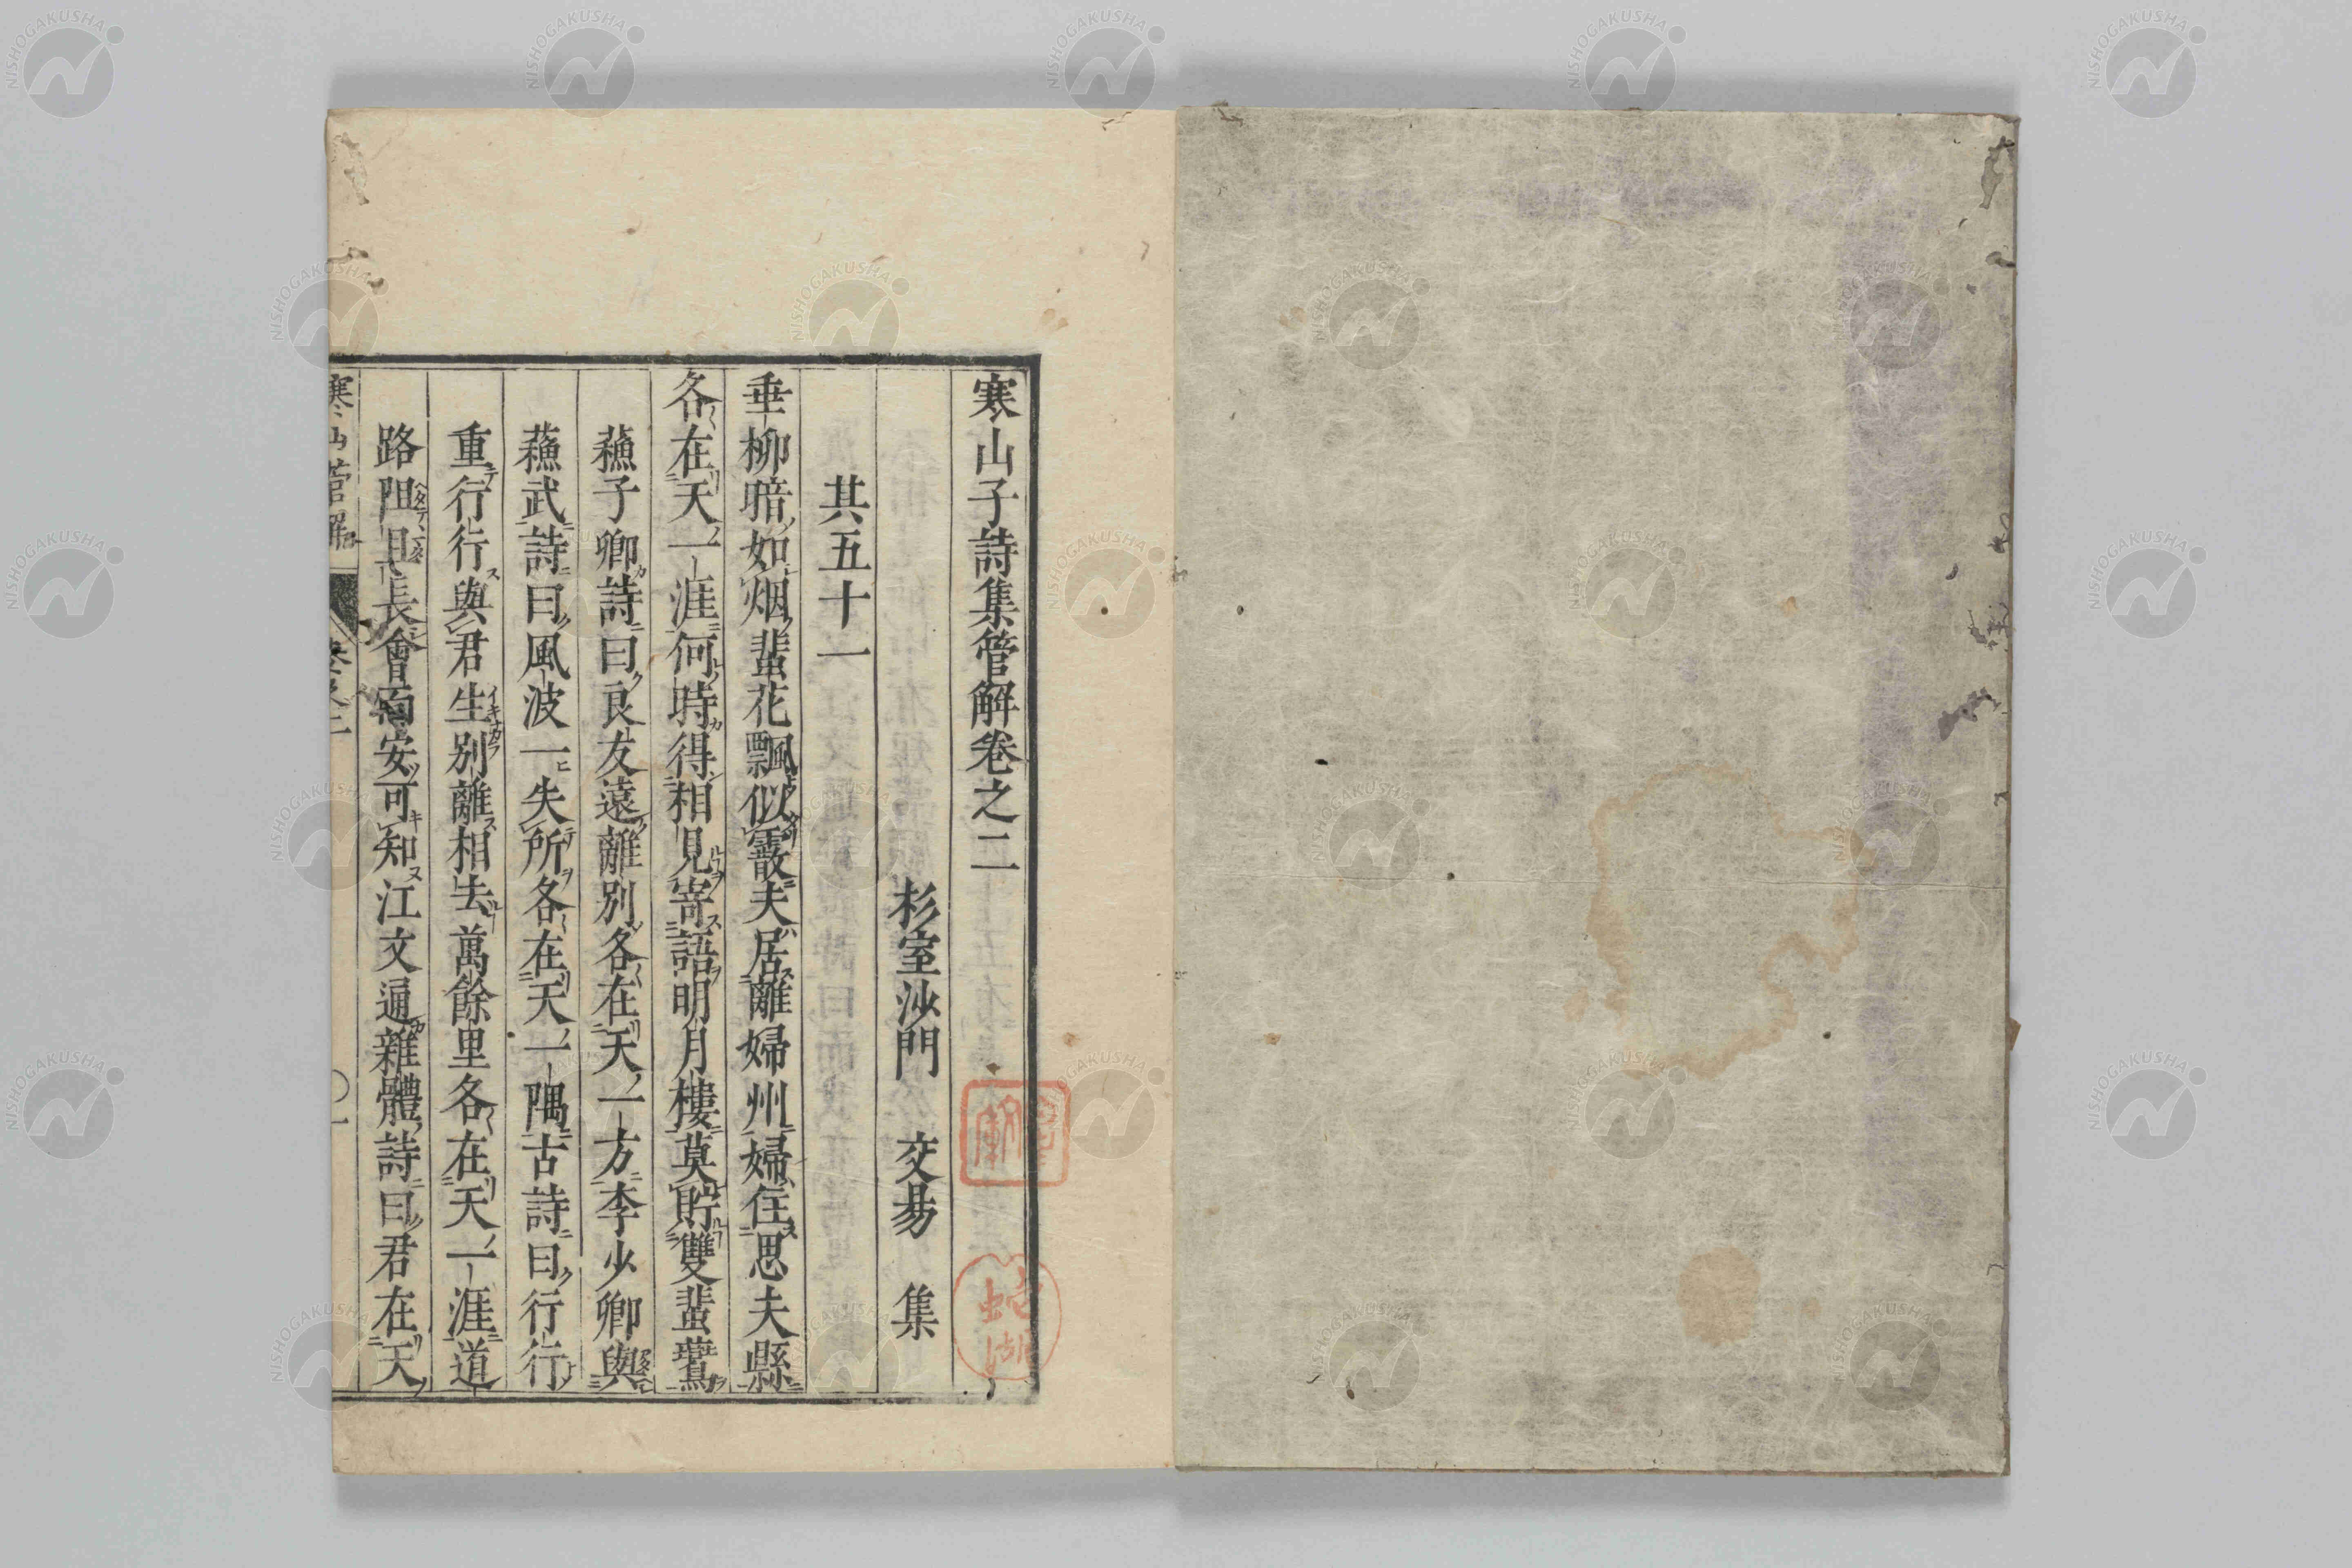 寒山子詩集管解卷之二
杉室沙門　交易　集
其五十一
垂柳暗如烟蜚花飄似霰夫居離婦州婦住思夫縣
各在天一涯何時得相見寄語明月樓莫貯雙蜚鷰
蘓子卿詩曰良友遠離別各在天一方李少卿與
蘓武詩曰風波一失所各在天一隅古詩曰行行
重行行與君生別離相去萬餘里各在天一涯道
路阻且長會面安可知江文通雜體詩曰君在天
寒山管解 卷之二 〇一
NISHOGAKUSHA